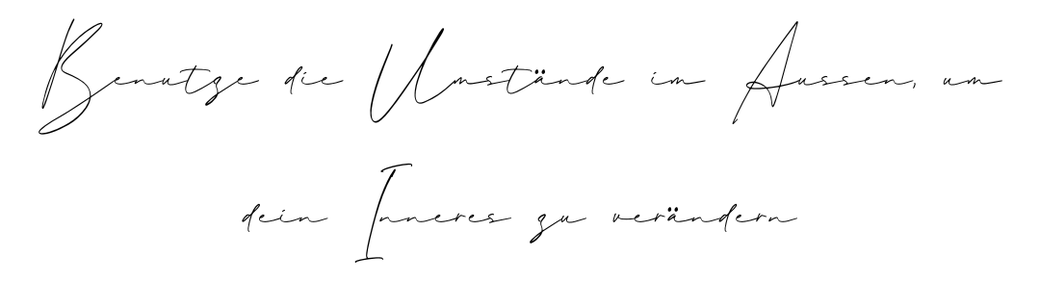 Benutze die Umstände im Aussen, um
dein Inneres zu verändern